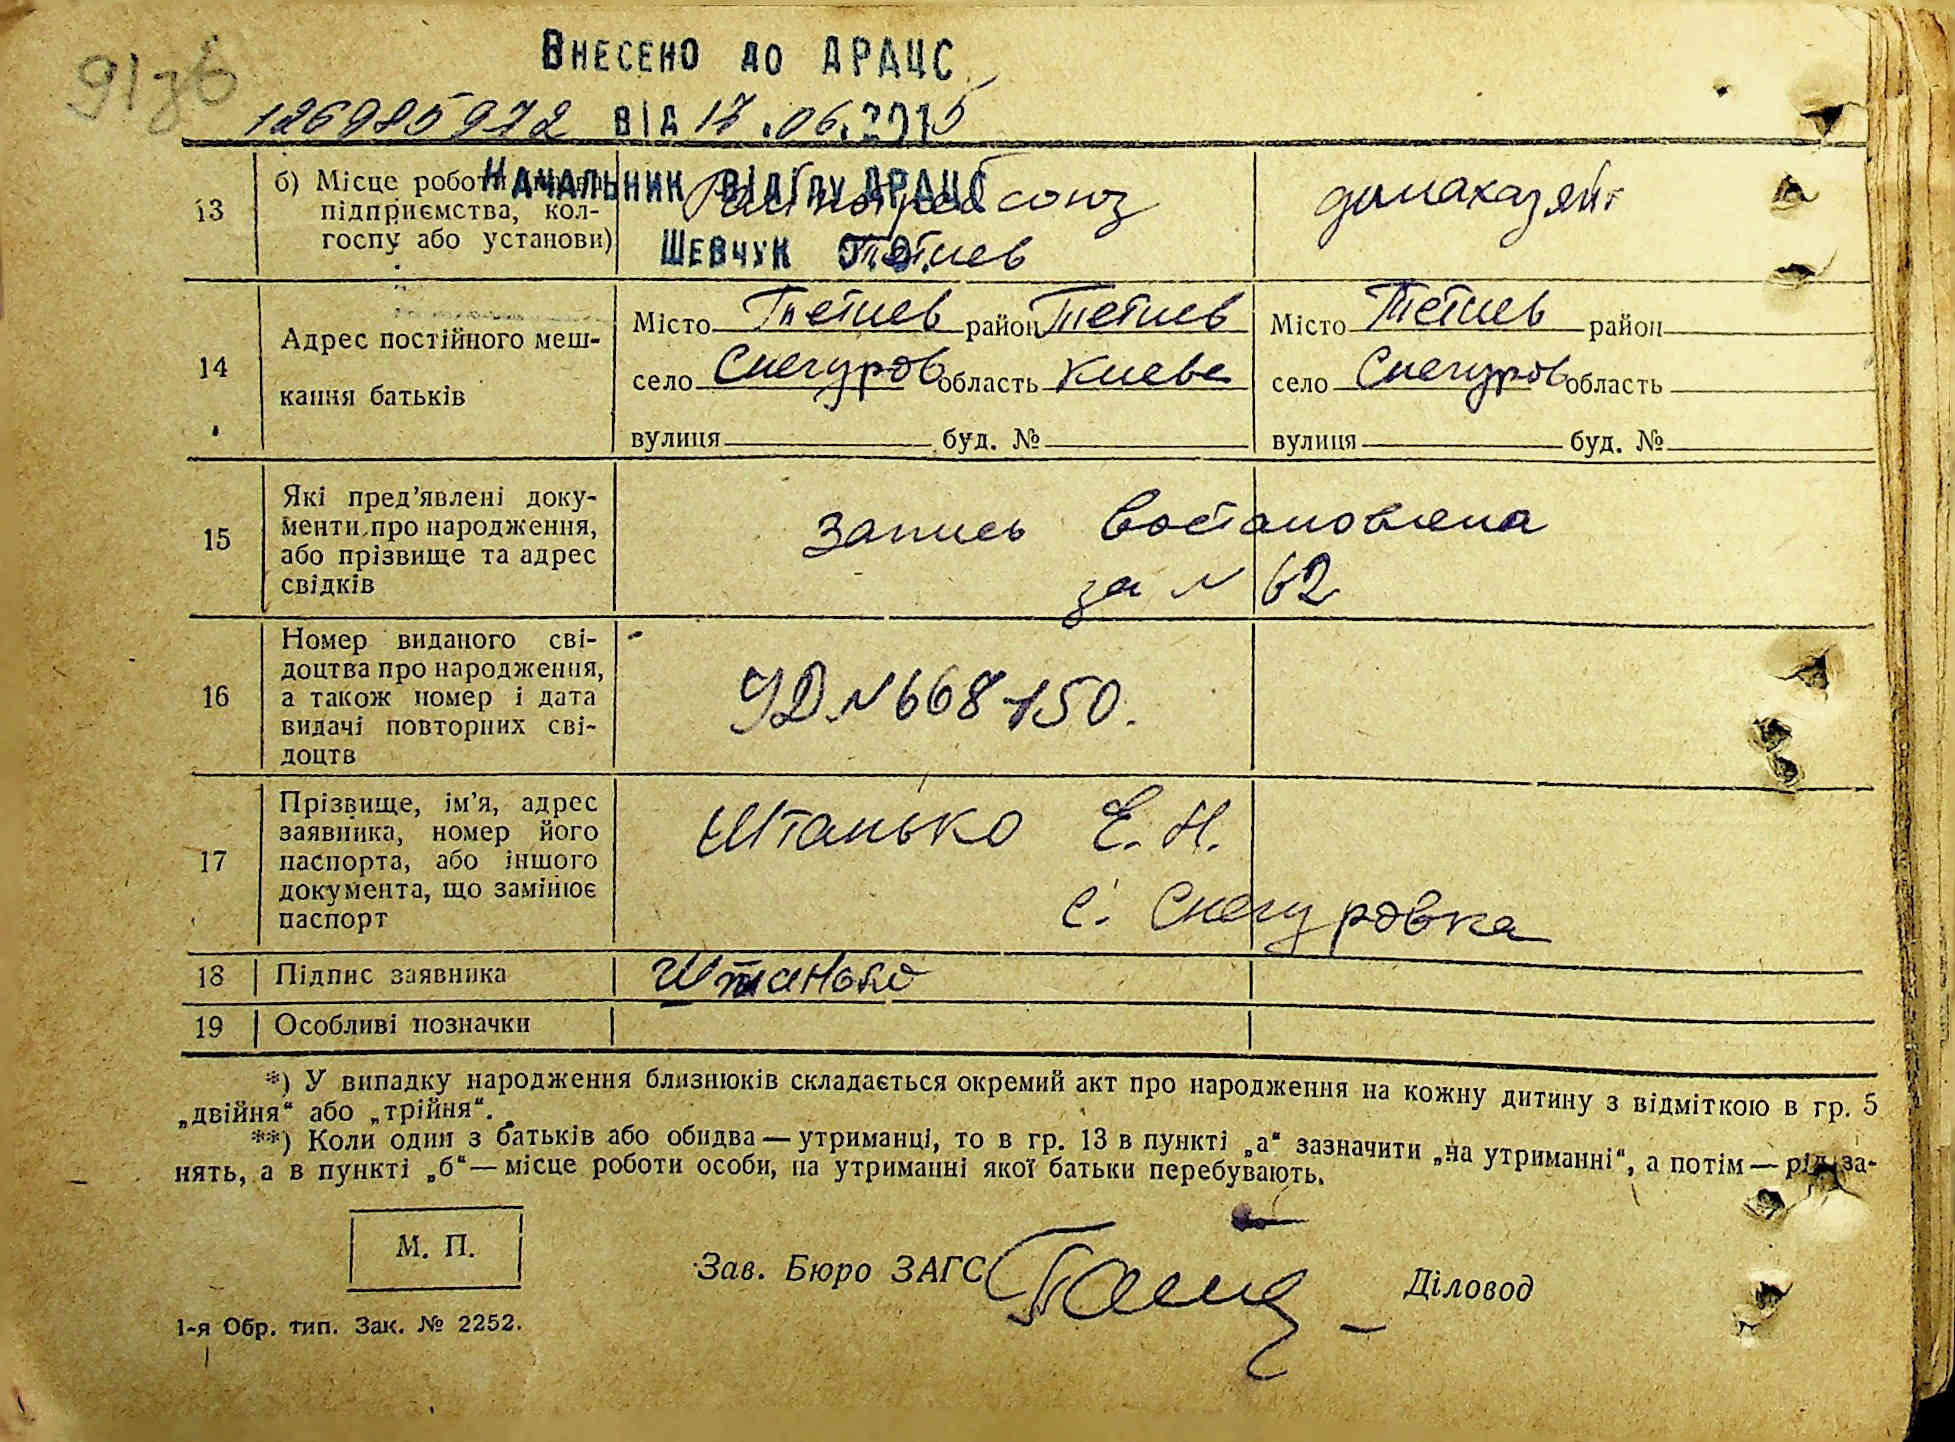 91зв
Внесено до ДРАЦС
126985972 від 17.06.2015
Начальник відділу ДРАЦС
Шевчук
13 б) Місце роботи
підприємства, кол-
госпу або установи)
союз
Тетиев
домахазяйт
14 Адрес постійного меш-
кання батьків
Місто Тетиев район Тетиев
село Снегуров область Киевс
вулиця буд. №
Місто Тетиев район
село Снегуров область
вулиця буд. №
15 Які пред'явлені доку-
менти про народження,
або прізвище та адрес
свідків
запись востановлена
за N 62
16 Номер виданого сві-
доцтва про народження,
а також номер і дата
видачі повторних сві-
доцтв
УД N 668150.
17 Прізвище, ім'я, адрес
заявника, номер його
паспорта, або іншого
документа, що замінює
паспорт
Штанько Е. Н.
с. Снегуровка
18 Підпис заявника
Штанько
19 Особливі позначки
*) У випадку народження близнюків складається окремий акт про народження на кожну дитину з відміткою в гр. 5
„двійня“ або „трійня“.
**) Коли один з батьків або обидва — утриманці, то в гр. 13 в пункті „а“ зазначити „на утриманні“, а потім — рід за-
нять, а в пункті „б“ — місце роботи особи, на утриманні якої батьки перебувають.
М. П.
Зав. Бюро ЗАГС
Діловод
1-я Обр. тип. Зак. № 2252.